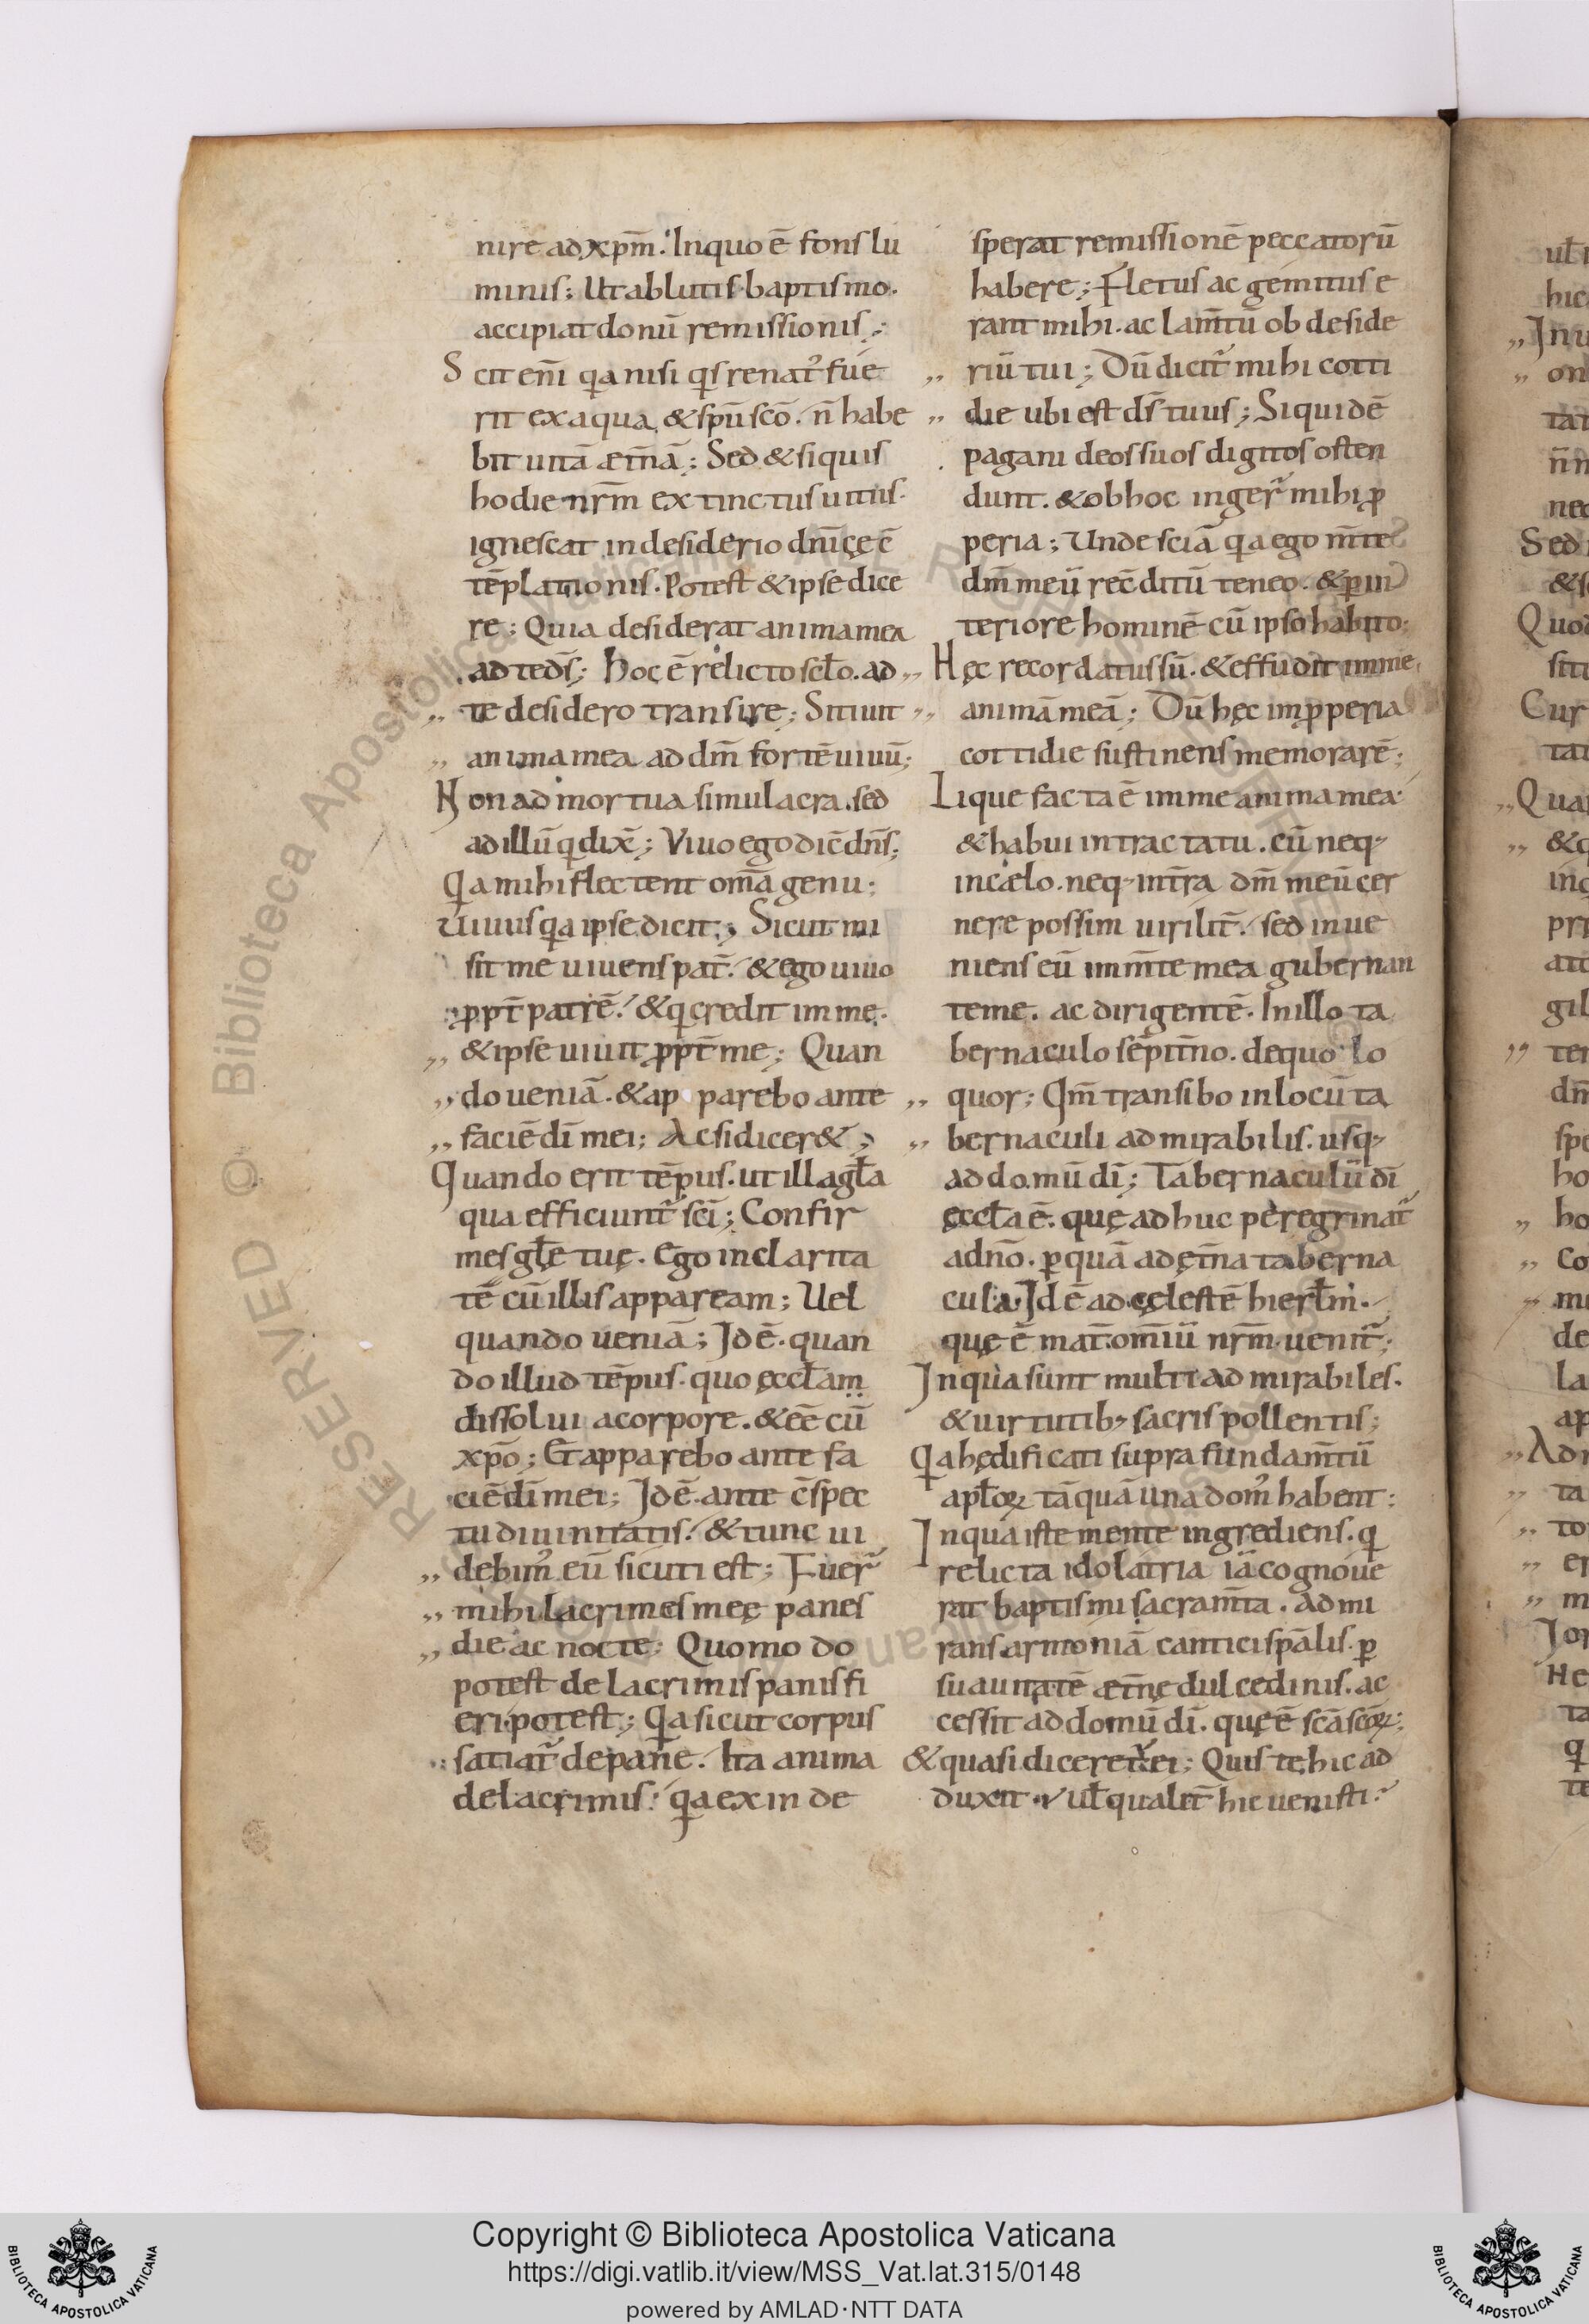 nire ad xp̄m. In quo ē fons lu
minis; Ut ablutis baptismo.
accipiat donū remissionis;
Scit eni̅ qa nisi qs renat᾽ fue
rit ex aqua & sp̄u sc̄o. n̄ habe
bit uitā æt̄nā; Sed & si quis
hodie nr̄m extinctus uitiis.
ignescat in desiderio dni̅cę c̄
tēplationis. Potest & ipse dice
re; Quia desiderat anima mea
ad te d̄s; Hoc ē relicto sc̄lo. ad
„ te desidero transire; Sitiuit
„ anima mea ad dm̄ fortē uiuū;
Non ad mortua simulacra. sed
ad illū q dix̄; Viuo ego dic̄ dn̄s;
Qa mihi flectent om̄a genu;
Uiuus qa ipse dicit; Sicut mi
sit me uiuens pat̄. & ego uiuo
ppt̄ patrē. & q credit in me.
„ & ipse uiuit ppt̄ me; Quan
„ do ueniā. & ap parebo ante
„ faciē dī mei; Ac si dicer&;
Quando erit tēpus. ut illa gl̄a
qua efficiunt᾽ sc̄i; Confir
mes gl̄ę tuę. Ego in clarita
tē cū illis appaream; Uel
quando ueniā; Id ē. quan
do illud tēpus. quo ęccl̄am
dissolui a corpore. & eē cū
xp̄o; Et apparebo ante fa
ciē dī mei; Id ē. ante c̄spec
tu diuinitatis. & tunc ui
„ debim᾽ eū sicuti est; Fuer᾽
„ mihi lacrimes meę panes
„ die ac nocte; Quomodo
potest de lacrimis panis fi
eri potest; Qa sicut corpus
satiat᾽ de pane. Ita anima
de lacrimis. qa exinde
sperat remissionē peccatorū
habere; Fletus ac gemitus e
rant mihi. ac lam̄tū ob deside
„ riū tui; Dū dicit᾽ mihi cotti
„ die ubi est d̄s tuus; Siquidē
pagani deos suos digitos osten
dunt. & ob hoc inger᾽ mihi p
peria; Unde sciā qa ego m̄te
dm̄ meū rec̄ditū teneo. & p in
teriore hominē cū ipso habito;
„ Hęc recordatus sū. & effudit in me
„ animā meā; Dū hęc impperia
cottidie sustinens memorarē;
Lique facta ē in me anima mea
& habui in tractatu. cū neq;
in cælo. neq; in t̄ra dm̄ meū cer
nere possim uirilit̄. sed inue
niens eū in m̄te mea gubernan
te me. ac dirigentē. In illo ta
bernaculo sēpit̄no. de quo lo
„ quor; Qm̄ transibo in locū ta
„ bernaculi admirabilis. usq;
ad domū dī; Tabernaculū dī
ęccl̄a ē. quę adhuc peregrinat᾽
a dn̄o. p quā ad ęt̄na taberna
cula. Id ē ad cęlestē hierl̄m.
quę ē mat̄ omīū nr̄m. uenit᾽;
In qua sunt multi admirabiles.
& uirtutib; sacris pollentis;
Qa hędificati supra fundam̄tū
apl̄oꝝ tāquā una dom᾽ habent;
In qua iste mente ingrediens. q
relicta idolatria iā cognoue
rat baptismi sacram̄ta. Admi
rans armoniā cantici sp̄alis. p
suauitatē æt̄nę dulcedinis. ac
cessit ad domū dī. quę ē sc̄a sc̄oꝝ;
& quasi diceret᾽ ei; Quis te hic ad
duxit. ul̄ qualit̄ hic uenisti?
Copyright © Biblioteca Apostolica Vaticana
https://digi.vatlib.it/view/MSS_Vat.lat.315/0148
powered by AMLAD·NTT DATA